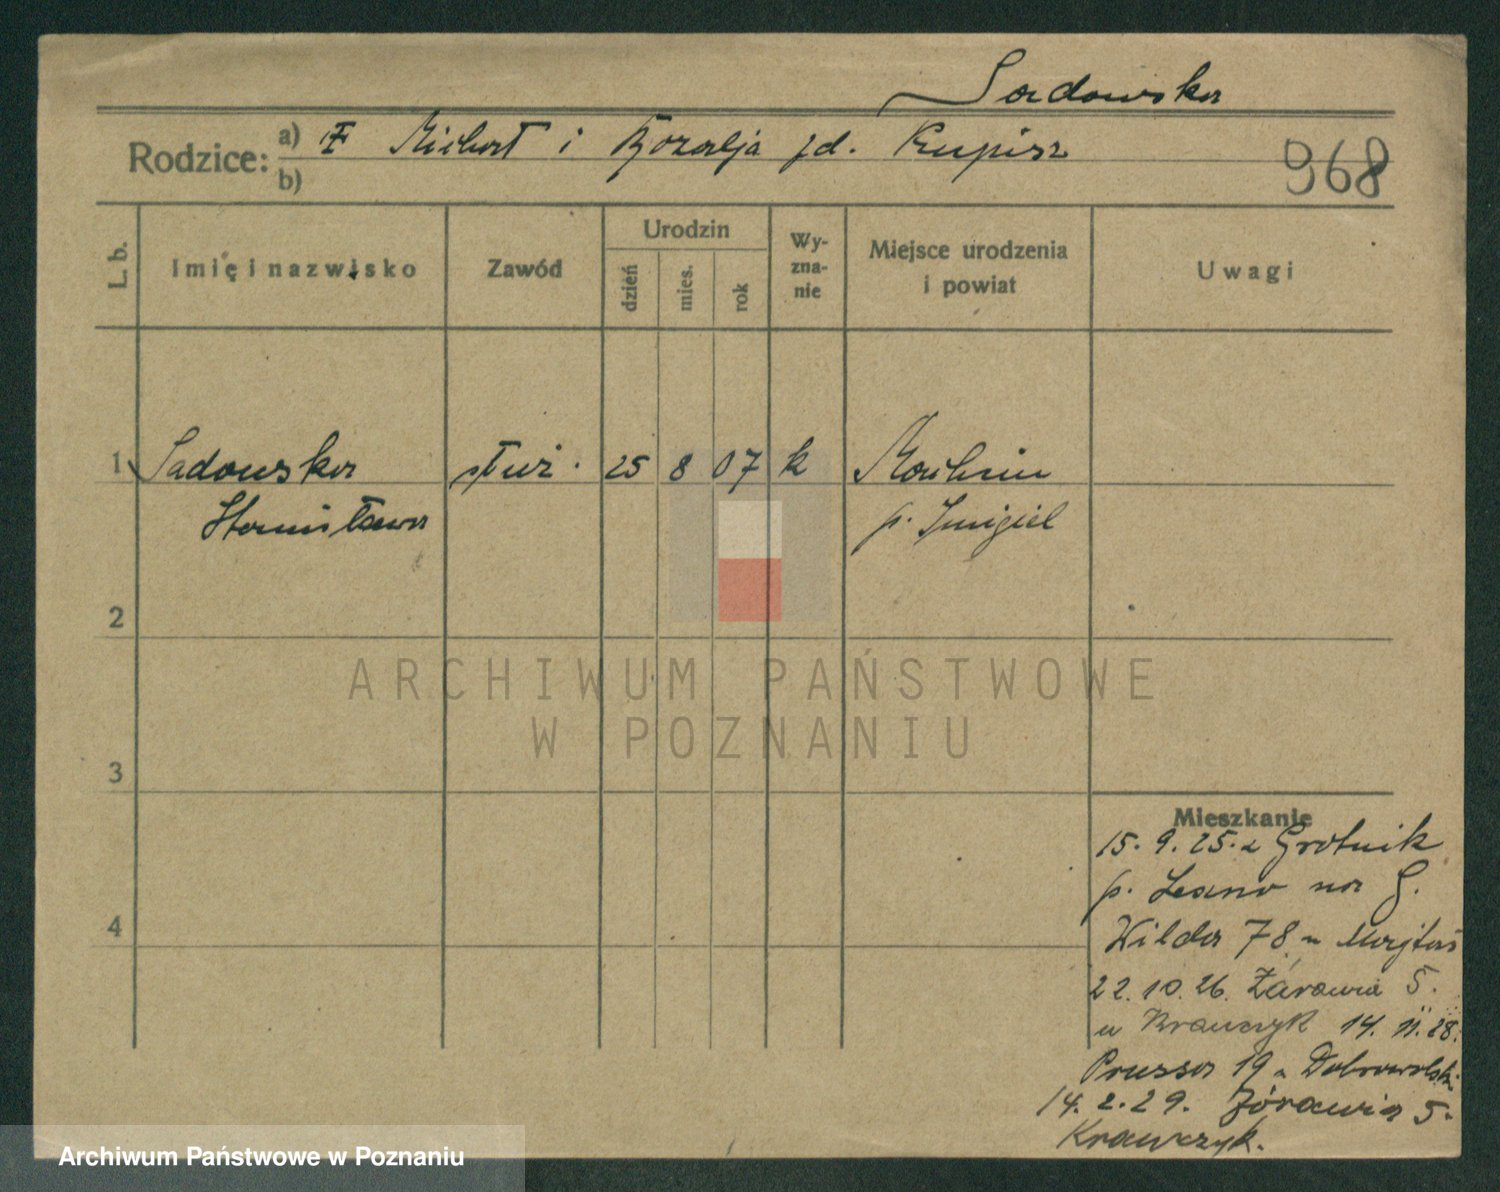 Sadowska
Rodzice: a) Michał i Rozalja zd. Kupisz
b)
968
L. b.
Imię i nazwisko
Zawód
Urodzin
dzień
mies.
rok
Wy-
zna-
nie
Miejsce urodzenia
i powiat
Uwagi
1 Sadowska służ. 25 8 07 k
Stanisława p. Śmigiel
2
3
4
Mieszkanie
15. 9. 25. z Grotnik
p. Leszno na G.
Wilda 78 u Majtas
22. 10. 26. Żórawia 5.
u Krawczyk 14. 11. 28.
Prussa 19 u Dobrowolski
14. 2. 29. Żórawia 5.
Krawczyk.
ARCHIWUM PAŃSTWOWE
W POZNANIU
Archiwum Państwowe w Poznaniu